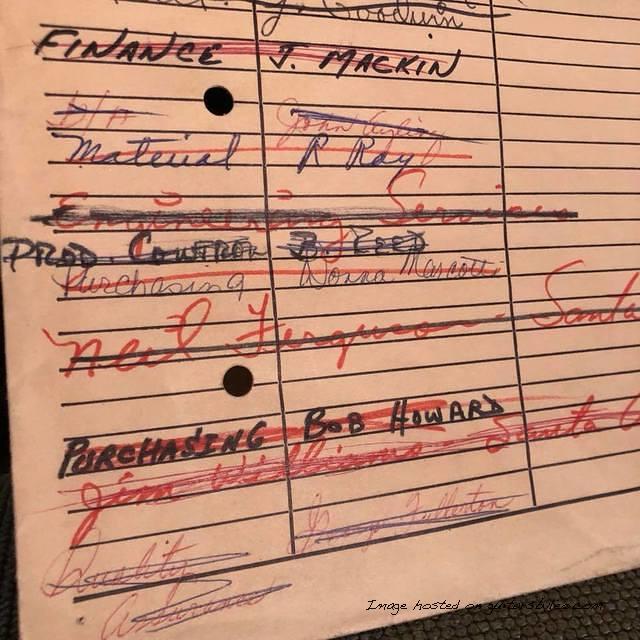 J. Goodwin
FINANCE J. MACKIN
Material R Ray
Engineering Services
PROD CONTROL B. REED
Purchasing Donna Mascotti
Neil Ferguson - Santa
PURCHASING BOB HOWARD
Jim Williams Santa
Quality George Fullerton
Assurance
Image hosted on guitarsbyleo.com